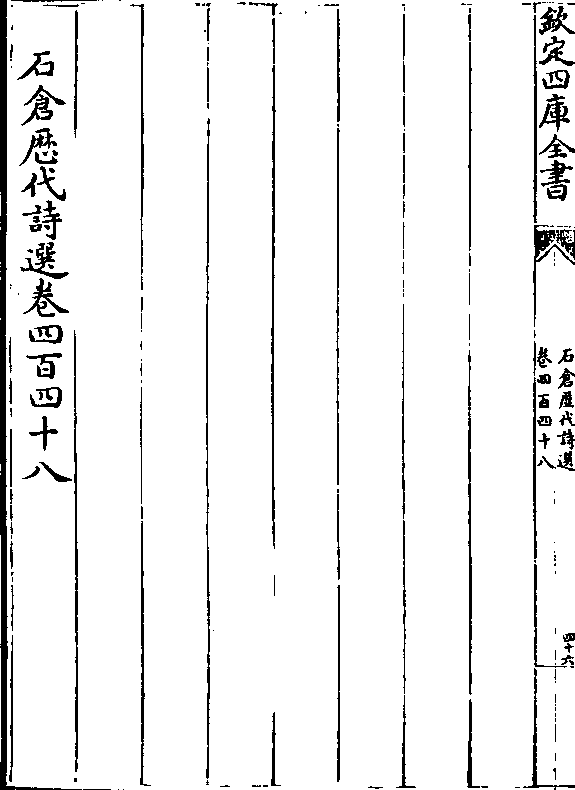 欽定四庫全書
石倉歴代詩選
卷四百四十八
四十六
石倉歴代詩選卷四百四十八